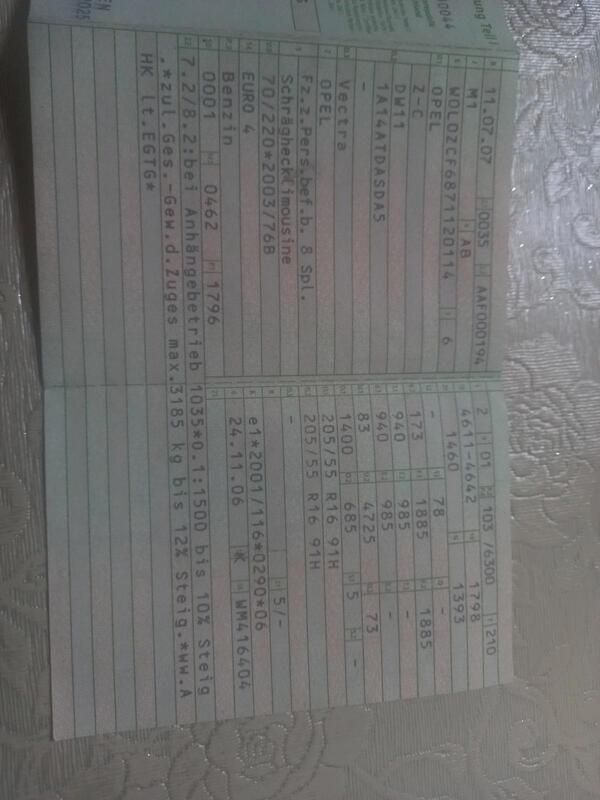 11.07.07 0035 AAF000194
M1 AB
W0L0ZCF6871120114 6
OPEL
Z-C
DW11
1A14ATDASDA5
-
Vectra
OPEL
Fz.z.Pers.bef.b. 8 Spl.
Schräghecklimousine
70/220*2003/76B
EURO 4
Benzin
0001 0462 1796
2 01 103 /6300 210
4611-4642 1798
1460 1393
- 78 -
173 1885 1885
940 985 -
940 985 -
83 4725 73
1400 685 5 -
205/55 R16 91H
205/55 R16 91H
- 5/-
e1*2001/116*0290*06
24.11.06 K WM416404
7.2/8.2:bei Anhängebetrieb 1035*0.1:1500 bis 10% Steig
.*zul.Ges.-Gew.d.Zuges max.3185 kg bis 12% Steig.*ww.A
HK lt.EGTG*